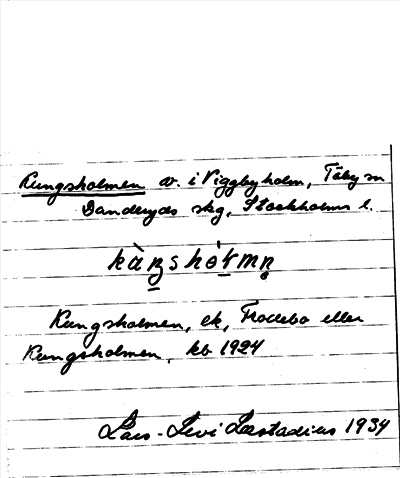 Kungsholmen av. i Viggbyholm, Täby sn
Danderyds skg, Stockholms l.
Kungsholmen, ek, Trollbo eller
Kungsholmen, kb 1924
Lars-Levi Læstadius 1934